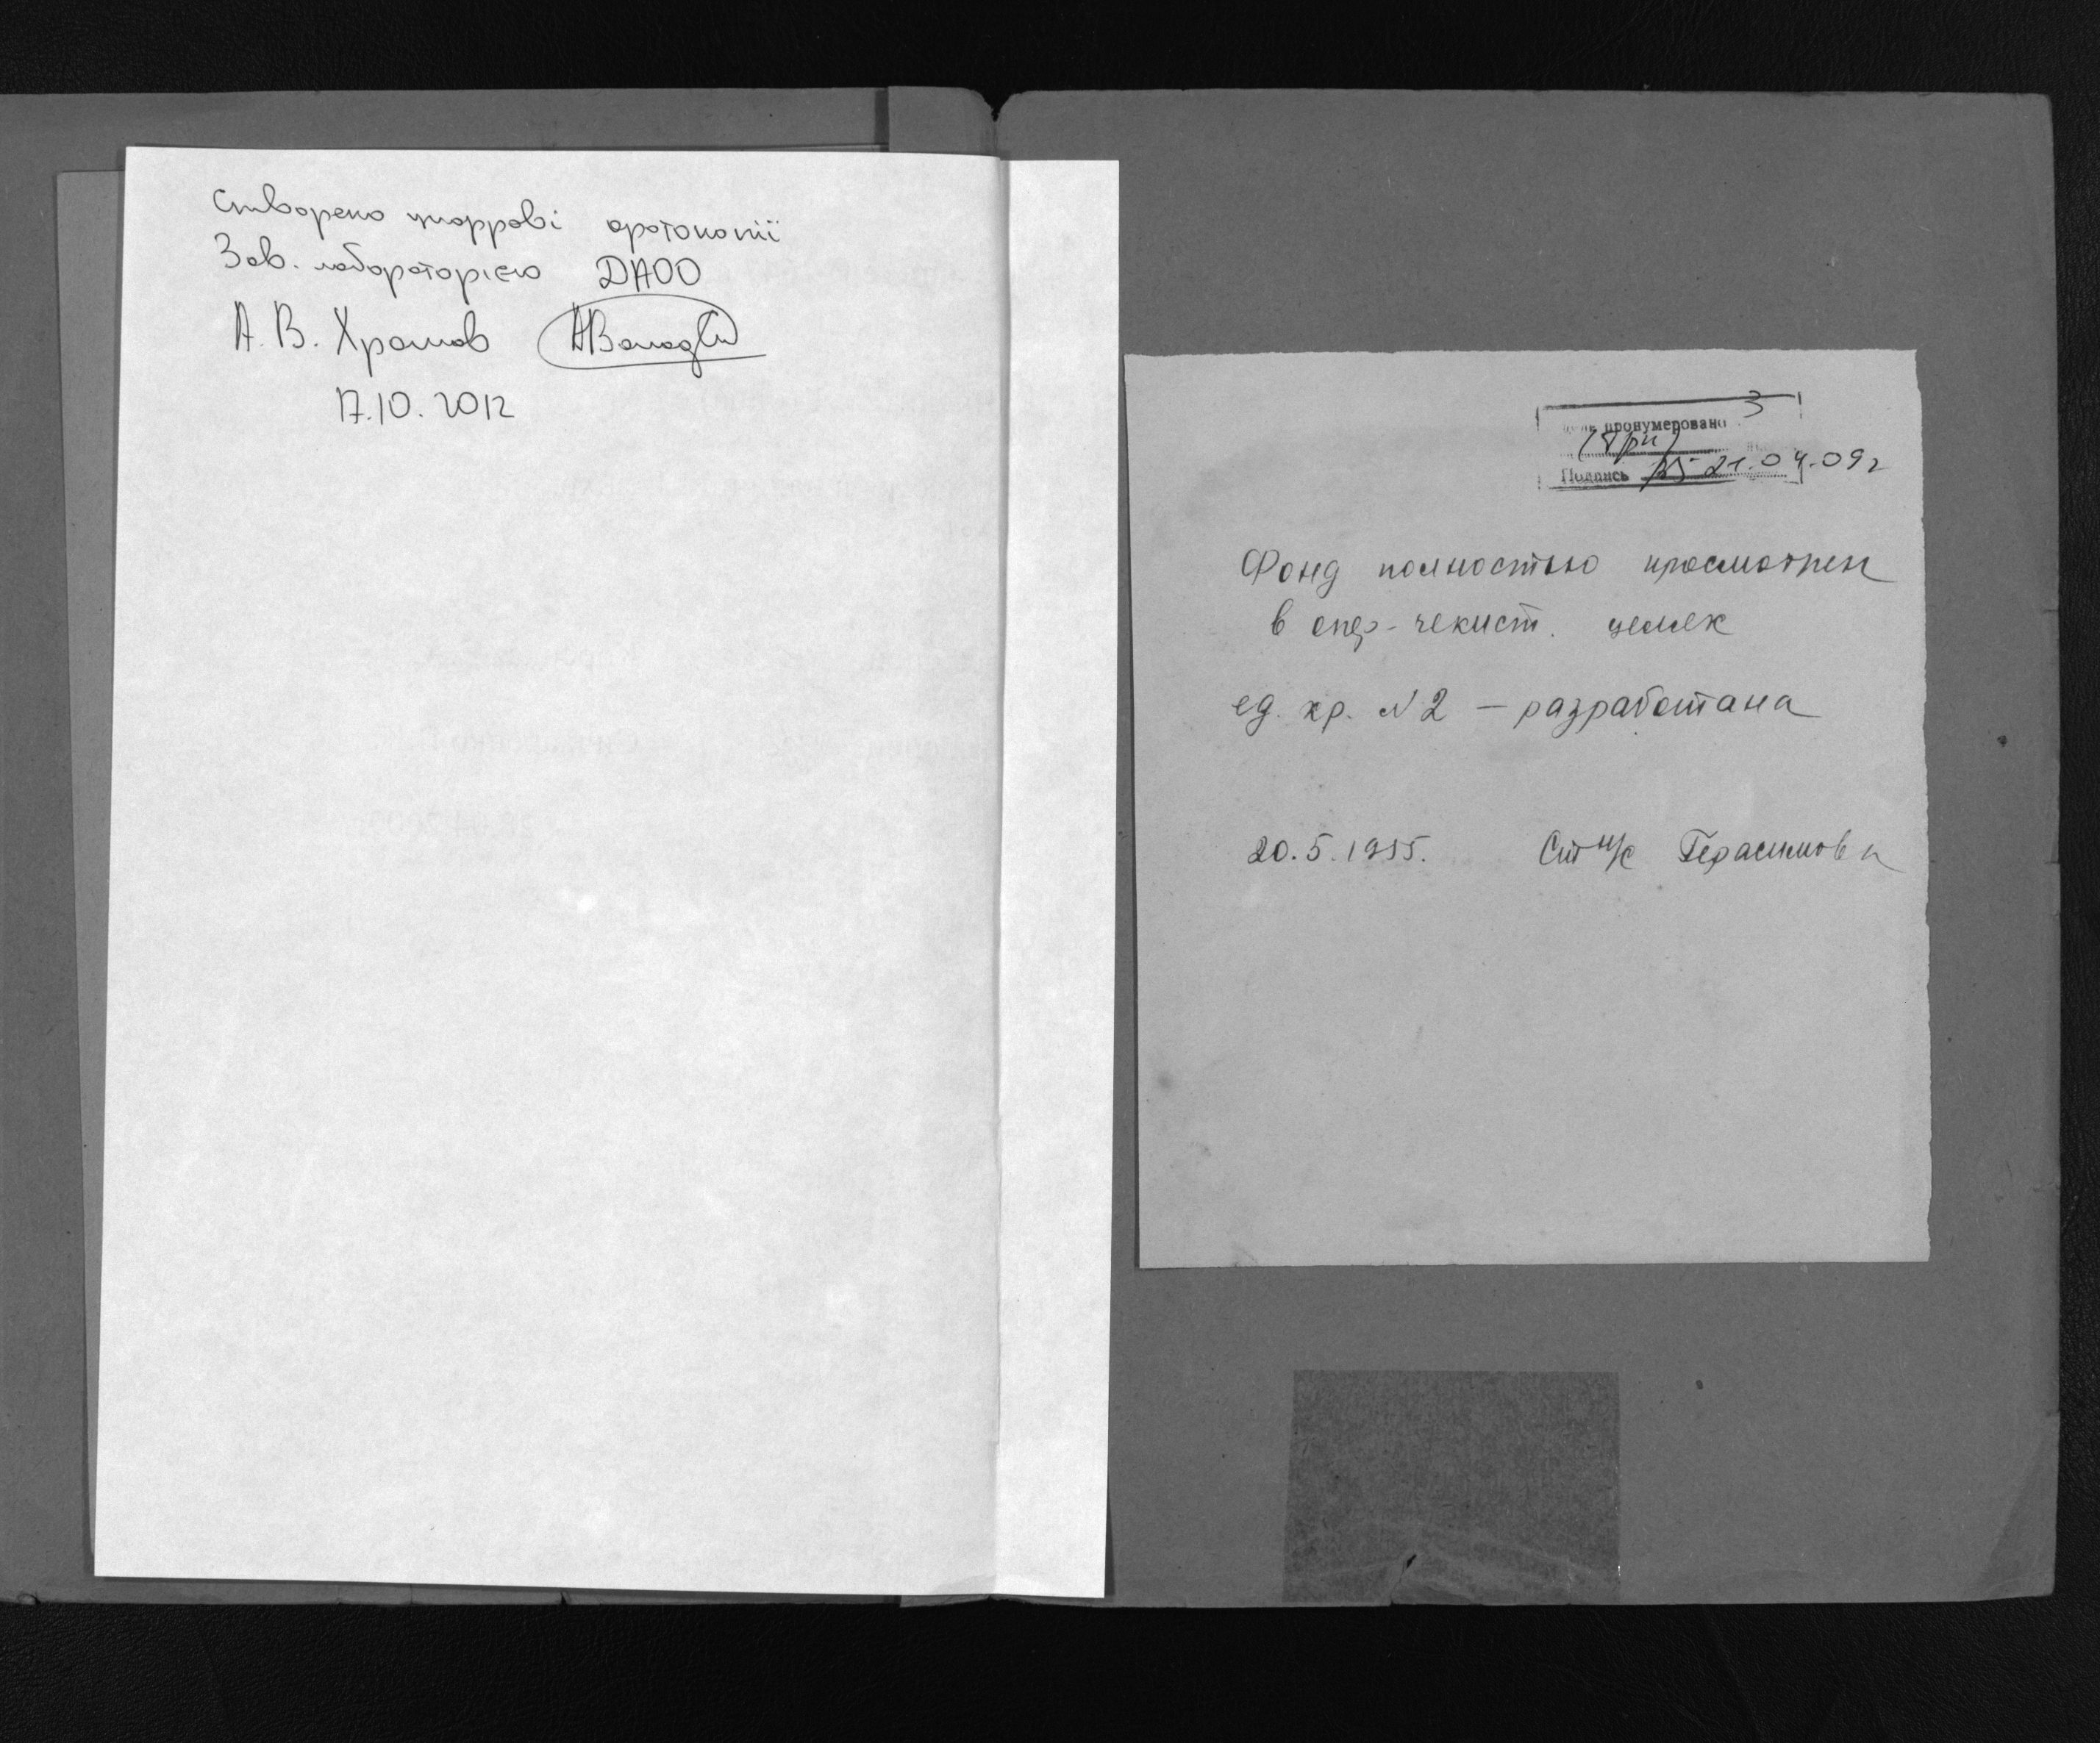 Створено цифрові фотокопії
Зав. лабораторією ДАОО
А. В. Храмов
17.10.2012
пронумеровано 3
(три)
Подпись 21.04.09г
Фонд полностью просмотрен
в опер-чекист. целях
ед. хр. N 2 — разработана
20.5.1955. Ст н/с Герасимова